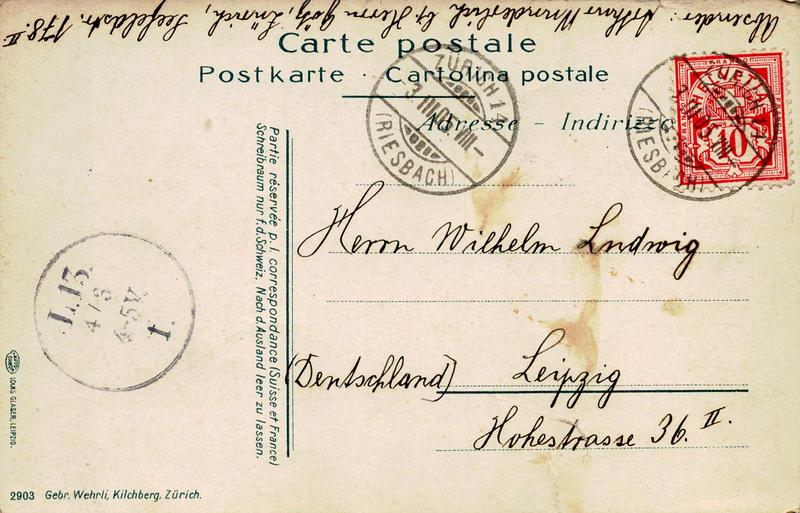 Absender: Lothar Wunderlich by Herrn Götz, Zürich, Seefeldstr. 178 II
Carte postale
Postkarte · Cartolina postale
Adresse – Indirizzo
ZÜRICH 14
(RIESBACH)
HELVETIA
10
(RIESBACH)
Partie réservée p. l. correspondance (Suisse et France)
Schreibraum nur f. d. Schweiz. Nach d. Ausland leer zu lassen.
Herrn Wilhelm Ludwig
(Deutschland) Leipzig
Hohestrasse 36. II.
L. 13.
4/3
4-5V.
1.
LOUIS GLASER, LEIPZIG.
2903 Gebr. Wehrli, Kilchberg, Zürich.